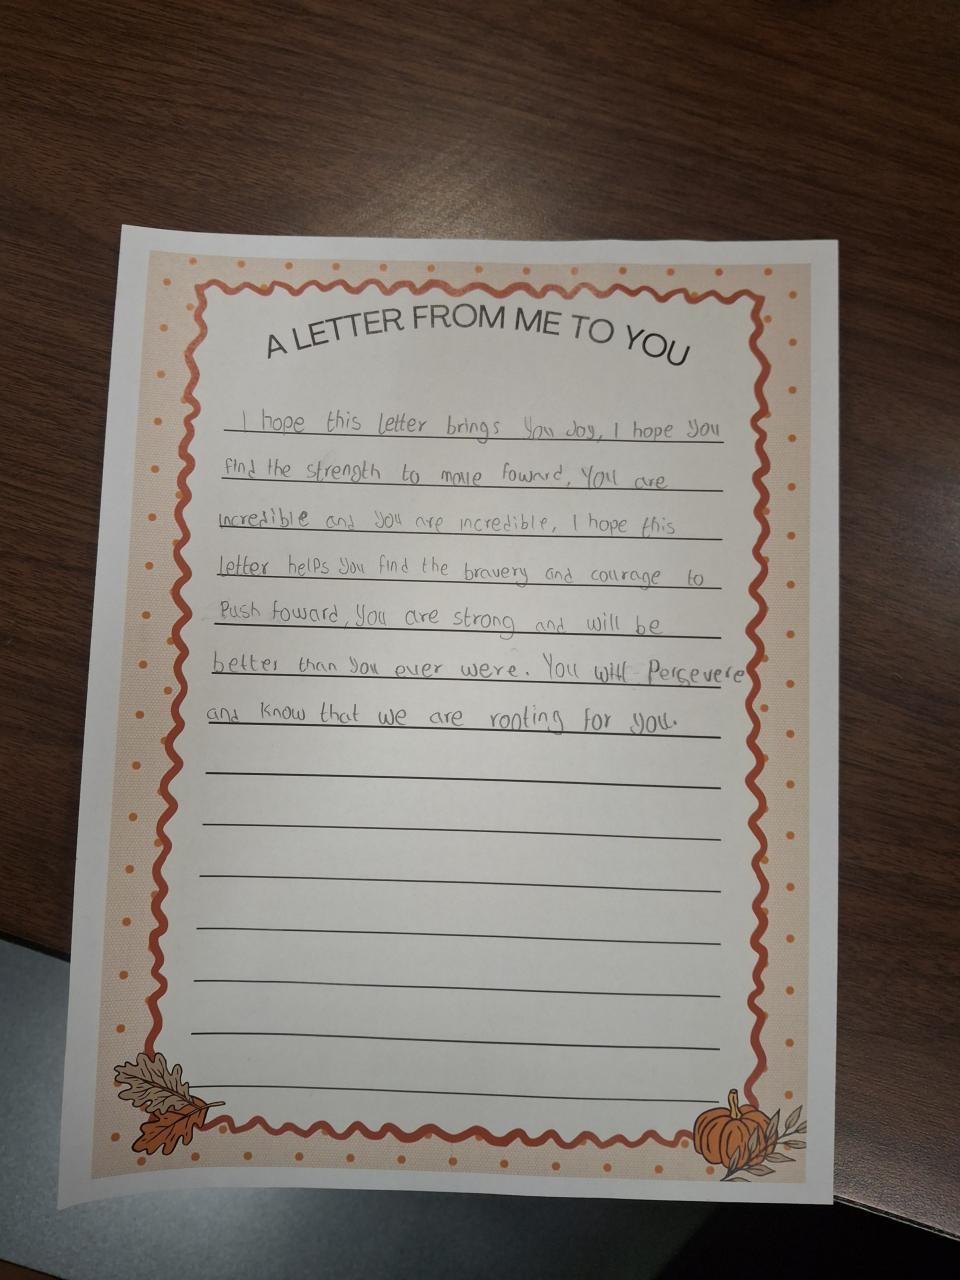 A LETTER FROM ME TO YOU
I hope this letter brings you Joy, I hope you
find the strength to move foward, You are
incredible and you are incredible, I hope this
letter helps you find the bravery and courage to
Push foward, you are strong and will be
better than you ever were. You will Persevere
and know that we are rooting for you.